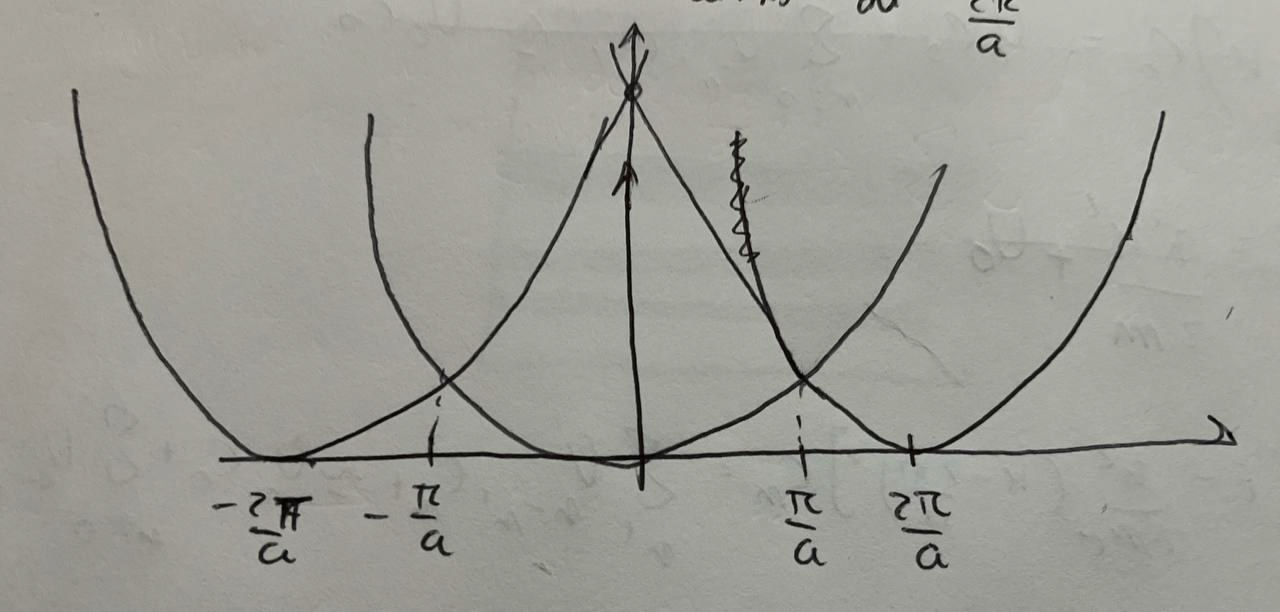 2π/a
-2π/a -π/a π/a 2π/a